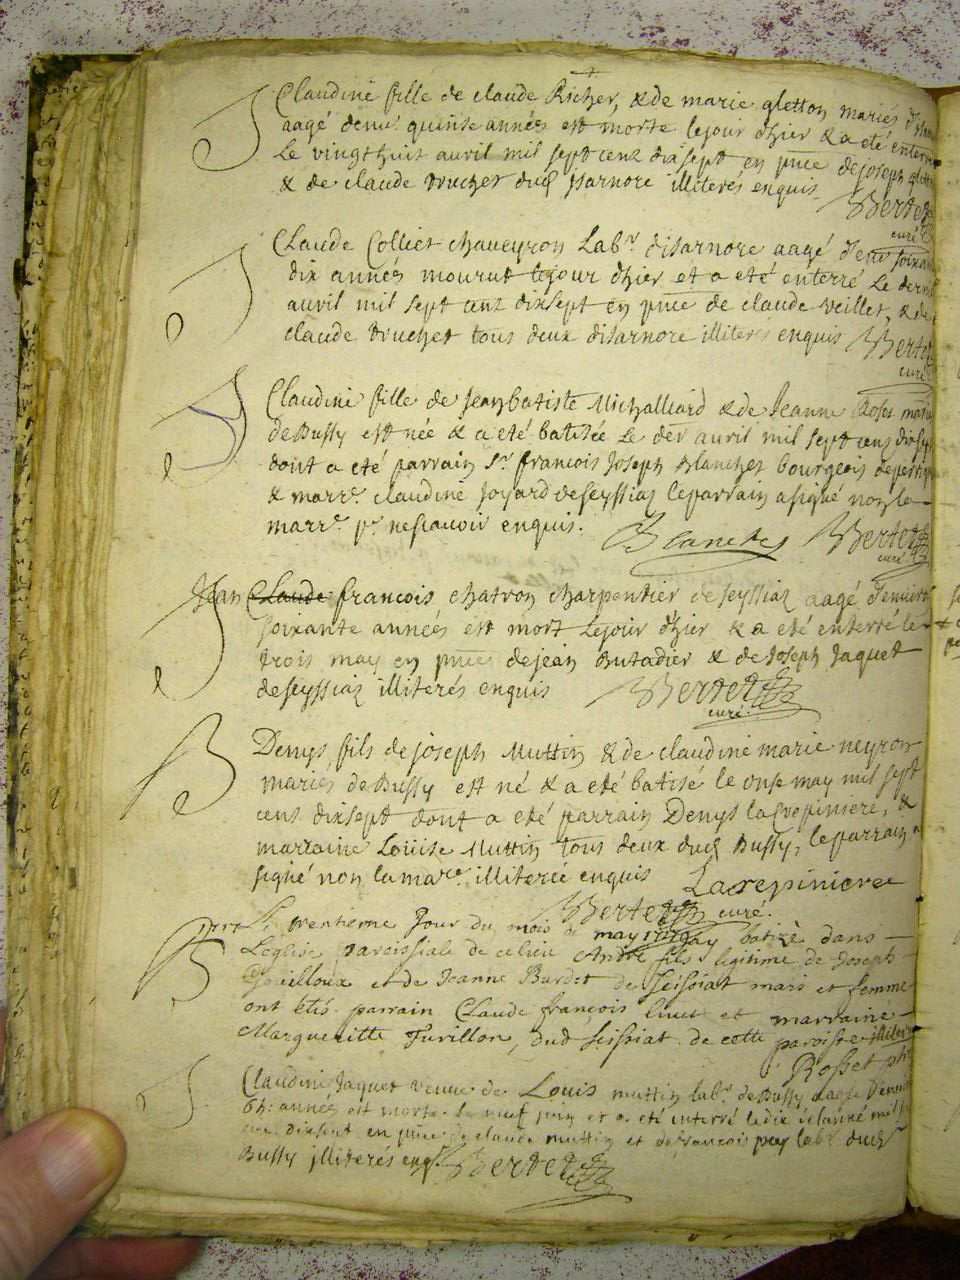 Claudine fille de claude Richer, & de marie gletton mariés
aagé denv. quinse années est morte le jour d'hier & a eté enterré
Le vingthuit avril mil sept cent dixsept en pnce de joseph
& de claude Truchet dud Isarnore illiterés enquis
Bertet
curé
Claude Collier chaveyron Labr d'isarnore aagé d'env soixan
dix années mourut le jour d'hier et a eté enterré le der
avril mil sept cent dixsept en pnce de claude veillet, & de
claude Truchet tous deux d'isarnore illiteres enquis Bertet
curé
Claudine fille de Jeanbatiste Michalliard & de Jeanne Roset
de Bussy est née & a eté batisée le der avril mil sept cens
dont a eté parrain Sr francois Joseph Blanchet bourgeois
& marre claudine Joyard de seyssiaz le parrain a signé non la
marre pr ne scavoir enquis.
Blanchet Bertet
curé
Jean Claude francois chatron charpentier de seyssiaz aagé d'enviro
soixante années est mort le jour d'hier & a eté enterré le
trois may en pnce de jean Butadier & de Joseph Jaquet
de seyssiaz illiterés enquis Bertet
curé
Denys fils de joseph Muttin & de claudine marie neyron
mariés de Bussy est né & a eté batisé le onse may mil sept
cent dixsept dont a eté parrain Denys lacrepiniere, &
marraine Loüise Muttin tous deux dud Bussy, le parrain a
signé non la mare illiterée enquis Lacrepiniere
Bertet curé.
trentieme Jour du mois de may 1717 jay batizé dans
L'eglise paroissiale de ce lieu André fils legitime de Joseph
Goüilloux et de Jeanne Burdet de Seissiat mari et femme
ont etés parrain Claude françois et marraine
Margueritte Turillon, dud Seissiat de cette paroisse
Rosset
Claudine Jaquet veuve de Louis muttin labr de Bussy aagée
années est morte le neuf juin et a eté enterré le dix
cent dixsept en pnce de claude muttin et de francois puy labr dud
Bussy illiterés enqs Bertet